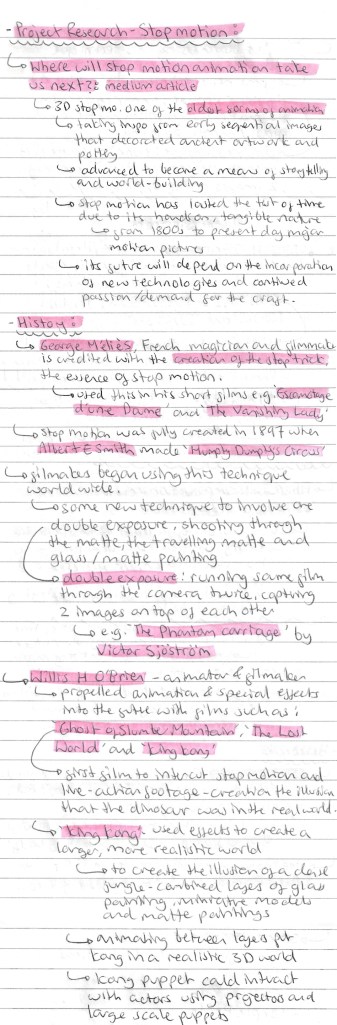 - Project Research - Stop motion :
↳ Where will stop motion animation take
us next?: medium article
↳ 3D stop mo. one of the oldest forms of animation
↳ taking inspo from early sequential images
that decorated ancient artwork and
pottery
↳ advanced to become a means of storytelling
and world-building
↳ stop motion has lasted the test of time
due to its hands on, tangible nature
↳ from 1800s to present day major
motion pictures
↳ its future will depend on the incorporation
of new technologies and continued
passion/demand for the craft.
- History:
↳ George Méliès, French magician and filmmaker
is credited with the creation of the stop trick,
the essence of stop motion.
↳ used this in his short films e.g. 'Escamotage
d'une Dame' and 'The Vanishing Lady'
↳ stop motion was fully created in 1897 when
Albert E Smith made 'Humpty Dumpty's Circus'
↳ filmakers began using this technique
world wide.
↳ some new technique to involve are
double exposure, shooting through
the matte, the travelling matte and
glass/matte painting
↳ double exposure: running same film
through the camera twice, capturing
2 images on top of each other
↳ e.g. 'The Phantom carriage' by
Victor Sjöström
↳ Willis H O'Brien - animator & filmaker
↳ propelled animation & special effects
into the future with films such as:
'Ghost of Slumber Mountain', 'The Lost
World' and 'King Kong'
↳ first film to intercut stop motion and
live-action footage - creation the illusion
that the dinosaur was in the real world.
↳ 'King Kong' used effects to create a
larger, more realistic world
↳ to create the illusion of a dense
jungle - combined layers of glass
painting, miniature models
and matte paintings
↳ animating between layers put
kong in a realistic 3D world
↳ Kong puppet could interact
with actors using projectors and
large scale puppets